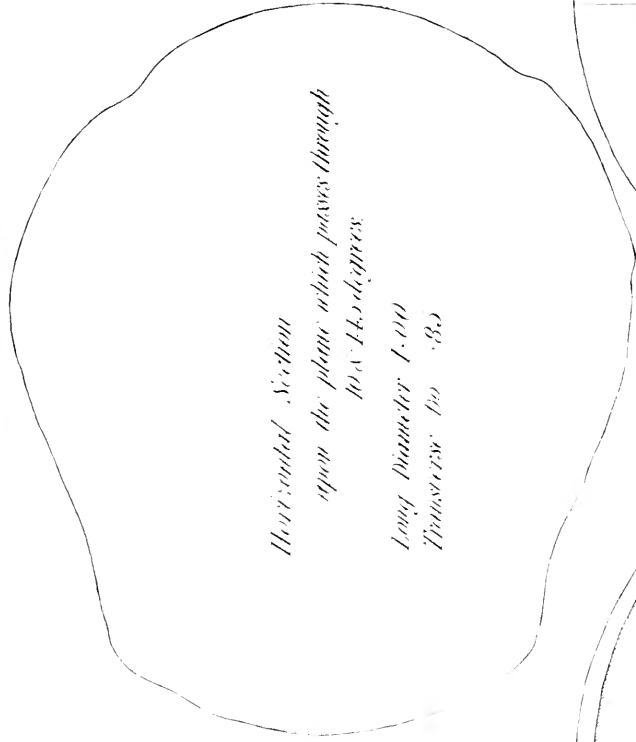 Horizontal Section
upon the plane which passes through
10 & 145 degrees
Long Diameter 1.00
Transverse Do .85